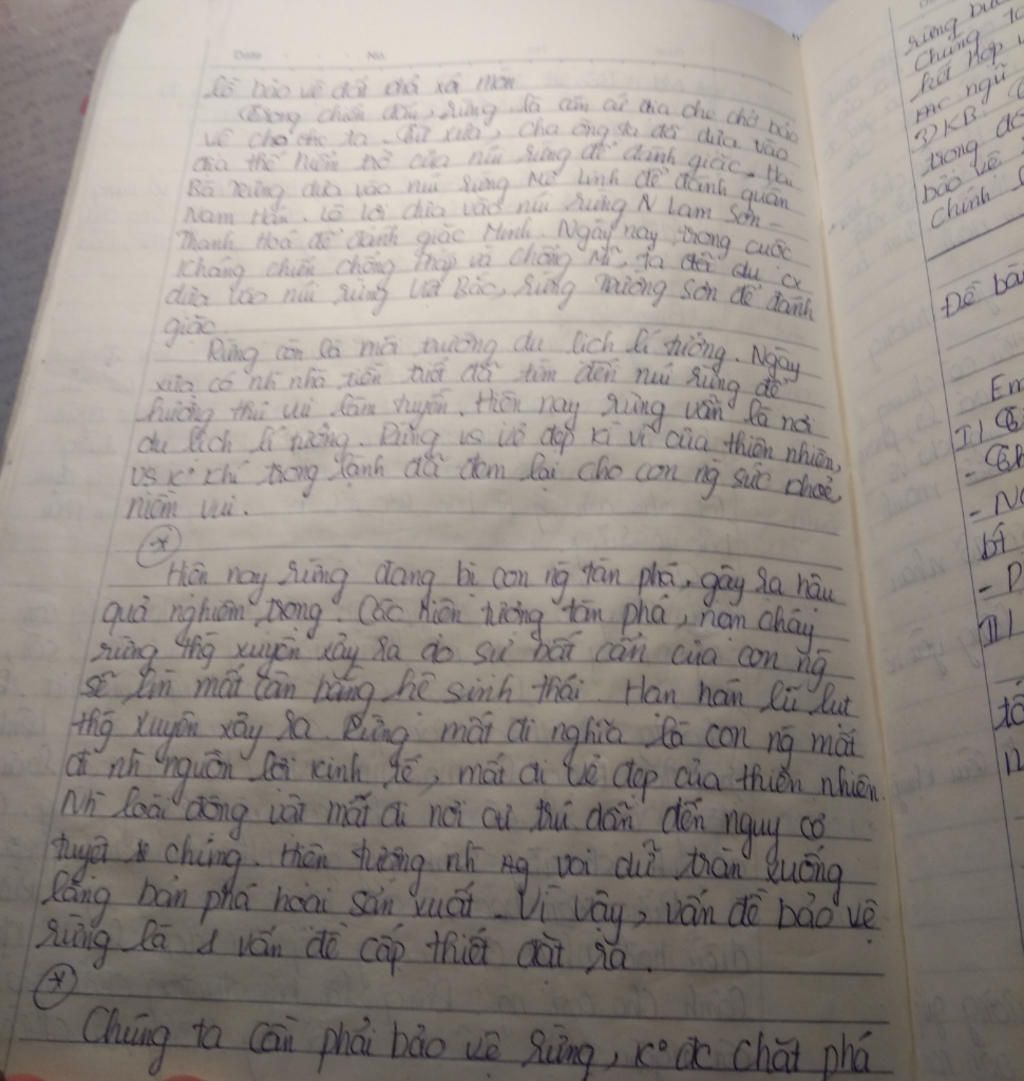 Date No.
lở bảo vệ đất chả xá mòn
Trong chiến đấu, rừng là căn cứ địa che chở bảo
vệ cho chc ta. Từ xưa, cha ông ta đã dựa vào
địa thế hiểm trở của núi rừng để đánh giặc. Hai
Bà Trưng dựa vào núi rừng Mê Linh để đánh quân
Nam Hán. Lê Lợi dựa vào núi rừng N Lam Sơn -
Thanh Hoá để đánh giặc Minh. Ngày nay, trong cuộc
kháng chiến chống Pháp và chống Mĩ, ta đã du cx
dựa vào núi rừng Việt Bắc, rừng Trường Sơn để đánh
giặc.
Rừng còn là môi trường du lịch lí tưởng. Ngày
xưa có nh~ nhà tiền triết đã tìm đến núi rừng để
hưởng thú vui lâm tuyền. Hiện nay rừng vẫn là nơi
du lịch lí tưởng. Rừng vs vẻ đẹp kì vĩ của thiên nhiên,
vs k° khí trong lành đã đem lại cho con ng̀ sức khoẻ,
niềm vui.
(*)
Hiện nay rừng đang bị con ng̀ tàn phá, gây ra hậu
quả nghiêm trọng. Các hiện tượng tàn phá, nạn cháy
rừng thg̀ xuyên xảy ra do sự bất cẩn của con ng̀
sẽ làm mất cân bằng hệ sinh thái. Hạn hán lũ lụt
thg̀ xuyên xảy ra. Rừng mất đi nghĩa là con ng̀ mất
đi nh~ nguồn lợi kinh tế, mất đi vẻ đẹp của thiên nhiên.
Nh~ loài động vật mất đi nơi cư trú dẫn đến nguy cơ
tuyệt chủng. Hiện tượng nh~ voi dữ tràn xuống
làng bản phá hoại sản xuất. Vì vậy, vấn đề bảo vệ
rừng là 1 vấn đề cấp thiết đặt ra.
(*)
Chúng ta cần phải bảo vệ rừng, k° đc chặt phá
rừng bừ
Chúng ta
kết hợp v
mc ngũ
3) KB:
trong đ
bảo vệ
Chính
Đề bà
Em
I)
- Cả
- N
bí
- P
II)
tá